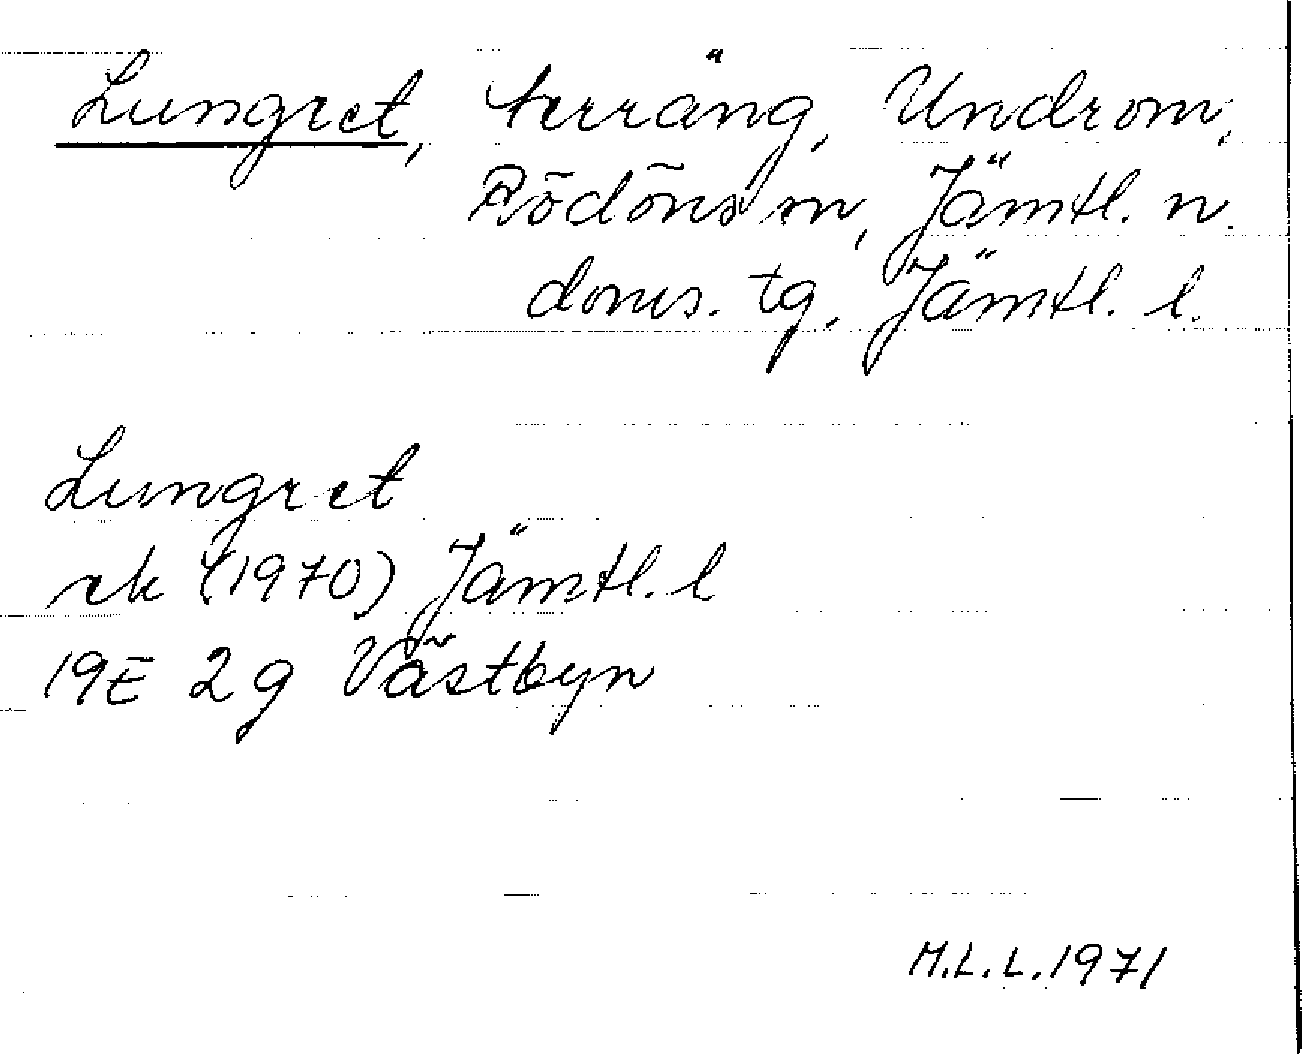 Lungret, terräng, Undrom,
Rödöns sn, Jämtl. n.
doms. tg, Jämtl. l.
Lungret
ek (1970) Jämtl. l
19E 2g Västbyn
M.L.L. 1971